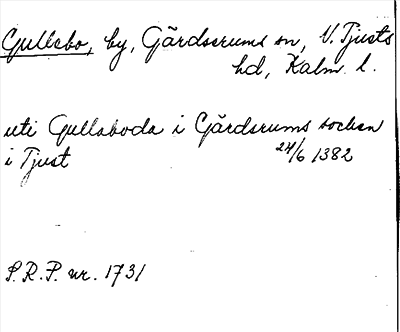 Gullebo, by, Gärdserums sn, N. Tjusts
hd, Kalm. l.
uti Gullaboda i Gärdsrums socken
i Tjust 24/6 1382
S.R.P. nr. 1731